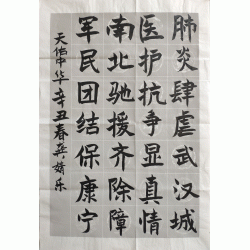 肺炎肆虐武汉城
医护抗争显真情
南北驰援齐除障
军民团结保康宁
天佑中华辛丑春吴靖乐